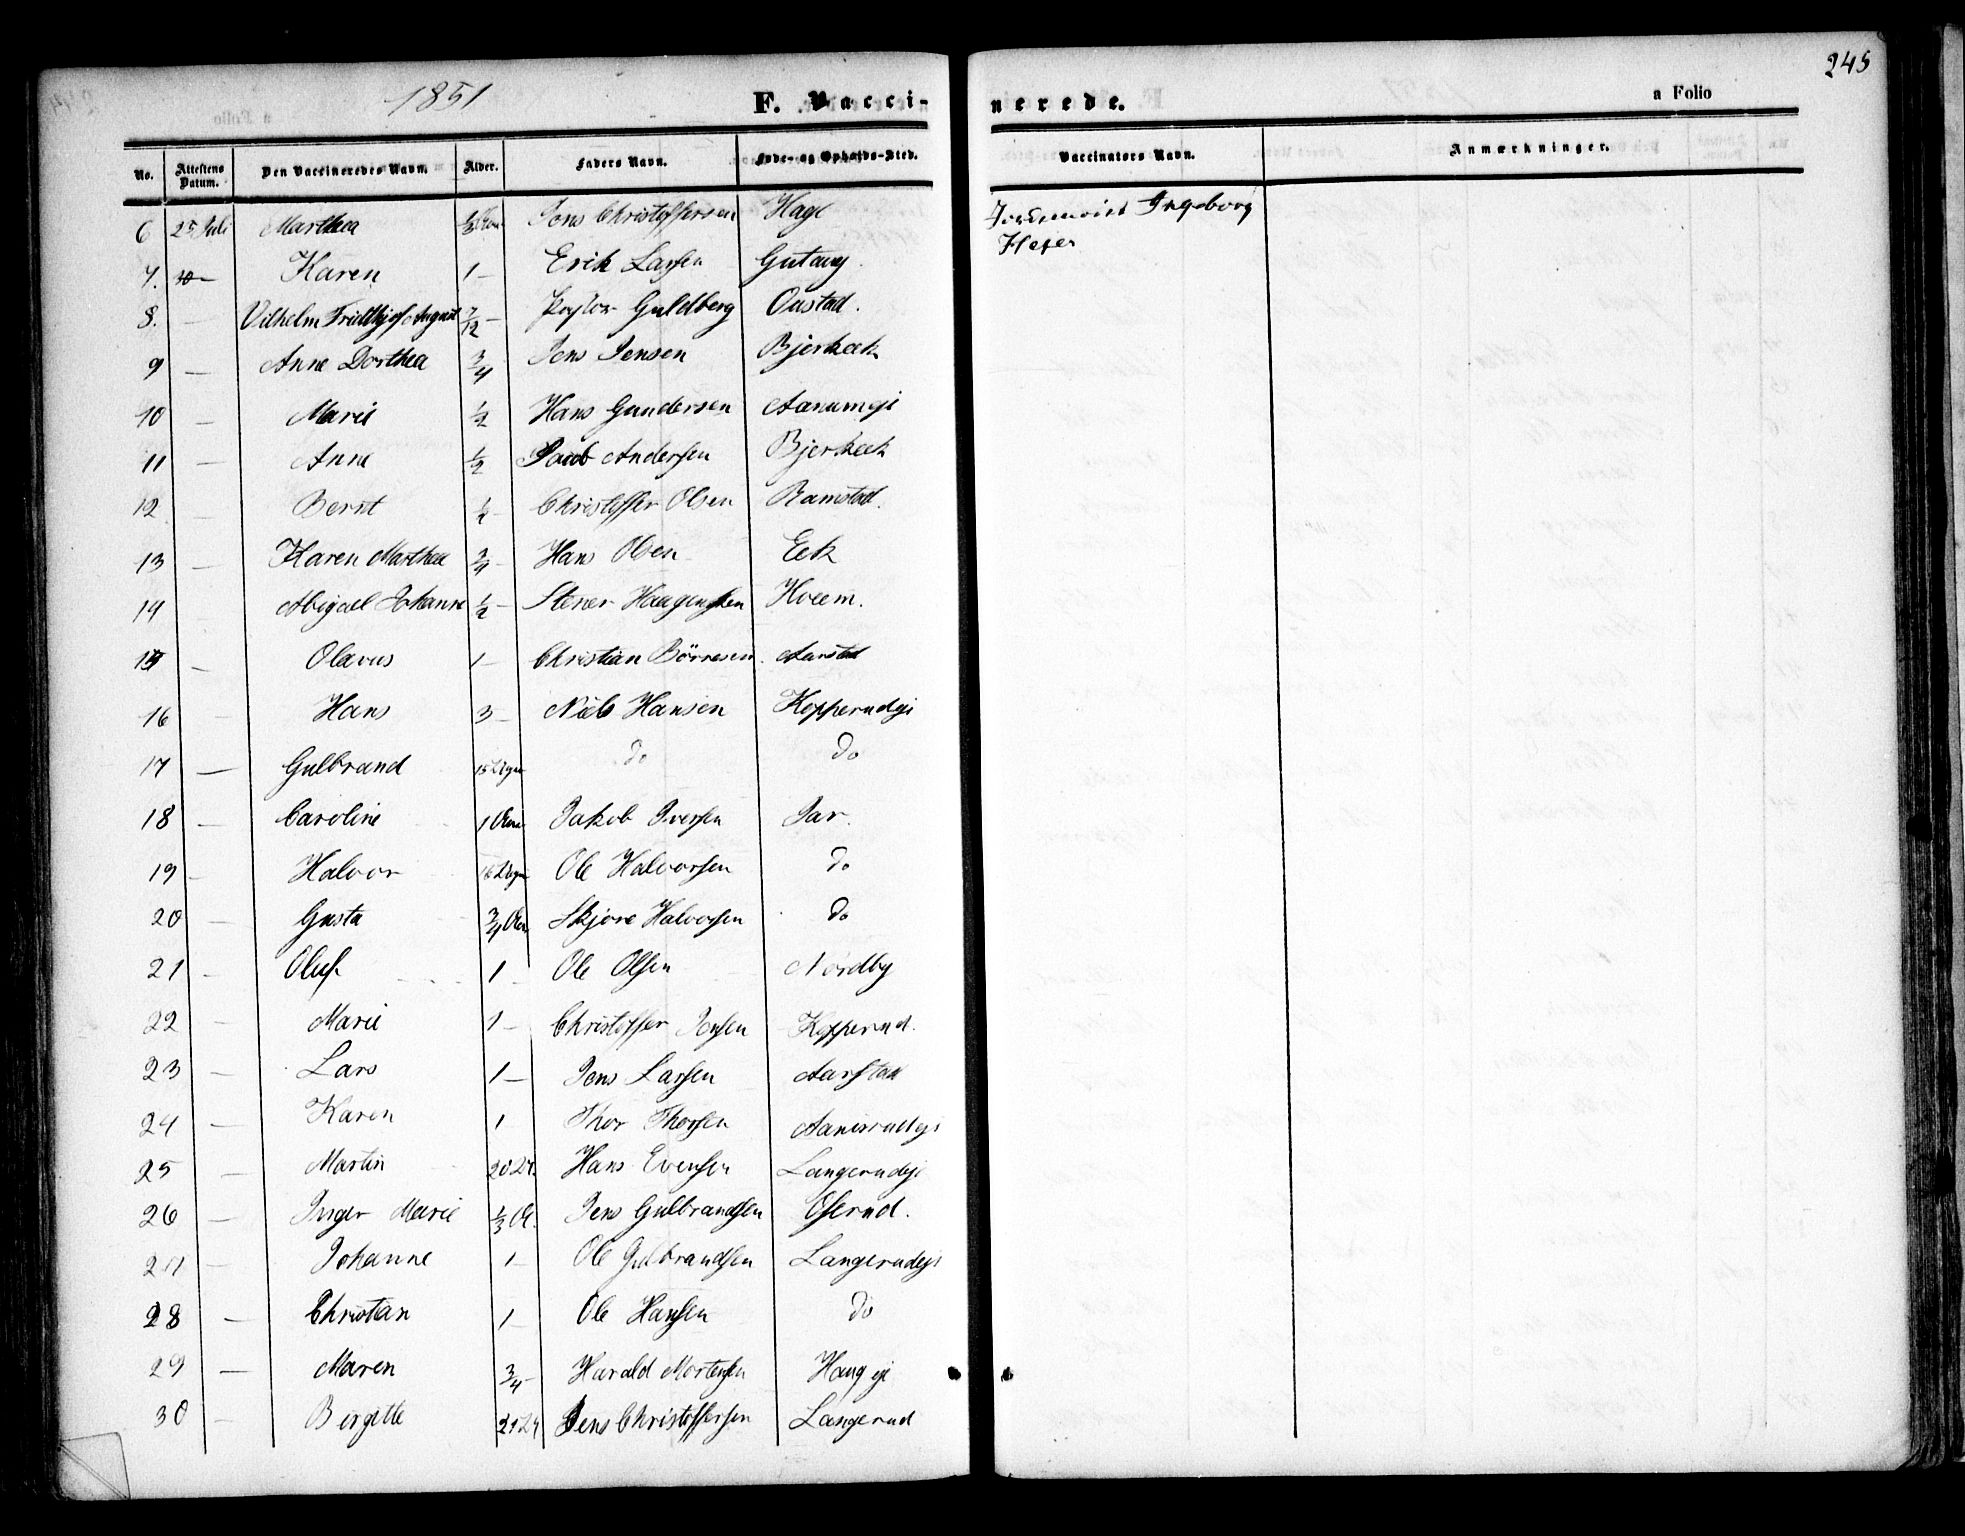 1851
F. Vacci-
nerede.
a Folio
245
No. Attestens Datum. Den Vaccineredes Navn. Alder. Faders Navn. Føde- og Opholds-Sted. Vaccinators Navn. Anmærkninger.
6 25 Juli Marthea Jens Christoffersen Hage Jordemoder Ingeborg
Hejer
7. Karen 1 – Erik Larsen Gutaug
8. — Vilhelm Fridthjof August 7/12 – Pastor Guldberg Oustad.
9 — Anne Dorthea 3/4 Jens Jensen Bjerkeek
10 — Marie 1/2 Hans Gundersen Aanumejr
11 — Anne 1/2 Jacob Andersen Bjerkeek
12 — Bernt 1/2 Christoffer Olsen Ramstad.
13 — Karen Marthea 3/4 – Hans Olsen Eek
14 Abigael Johanne 1/2 – Stener Haagensen Hveem.
15 — Olavus 1 – Christian Börresen. Aarstad
16 — Hans 3 – Niels Hansen Kopperudejr
17 — Gulbrand 15 Uger do do
18 — Caroline 1 Aar Jakob Iversen Jar.
19 – Halvor 16 Uger Ole Halvorsen do
20 — Gusta 3/4 Aar Skjøre Halvorsen do
21 – Oluf 1 – Ole Olsen Nordby
22 — Marie 1 – Christoffer Jensen Kopperud.
23 — Lars 1 – Jens Larsen Aarstad
24 — Karen 1 Thor Thorsen Aamerudejr
25 — Martin 20 U. Hans Evensen Langerudejr
26 — Inger Marie 1/3 A. Jens Gulbrandsen Oserud.
27 – Johanne 1 – Ole Gulbrandsen Langerudejr
28 — Christian 1 – Ole Hansen do
29 — Maren 3/4 – Harald Mortensen Haugejr
30 — Birgitte 21 U. Jens Christoffersen Langerud